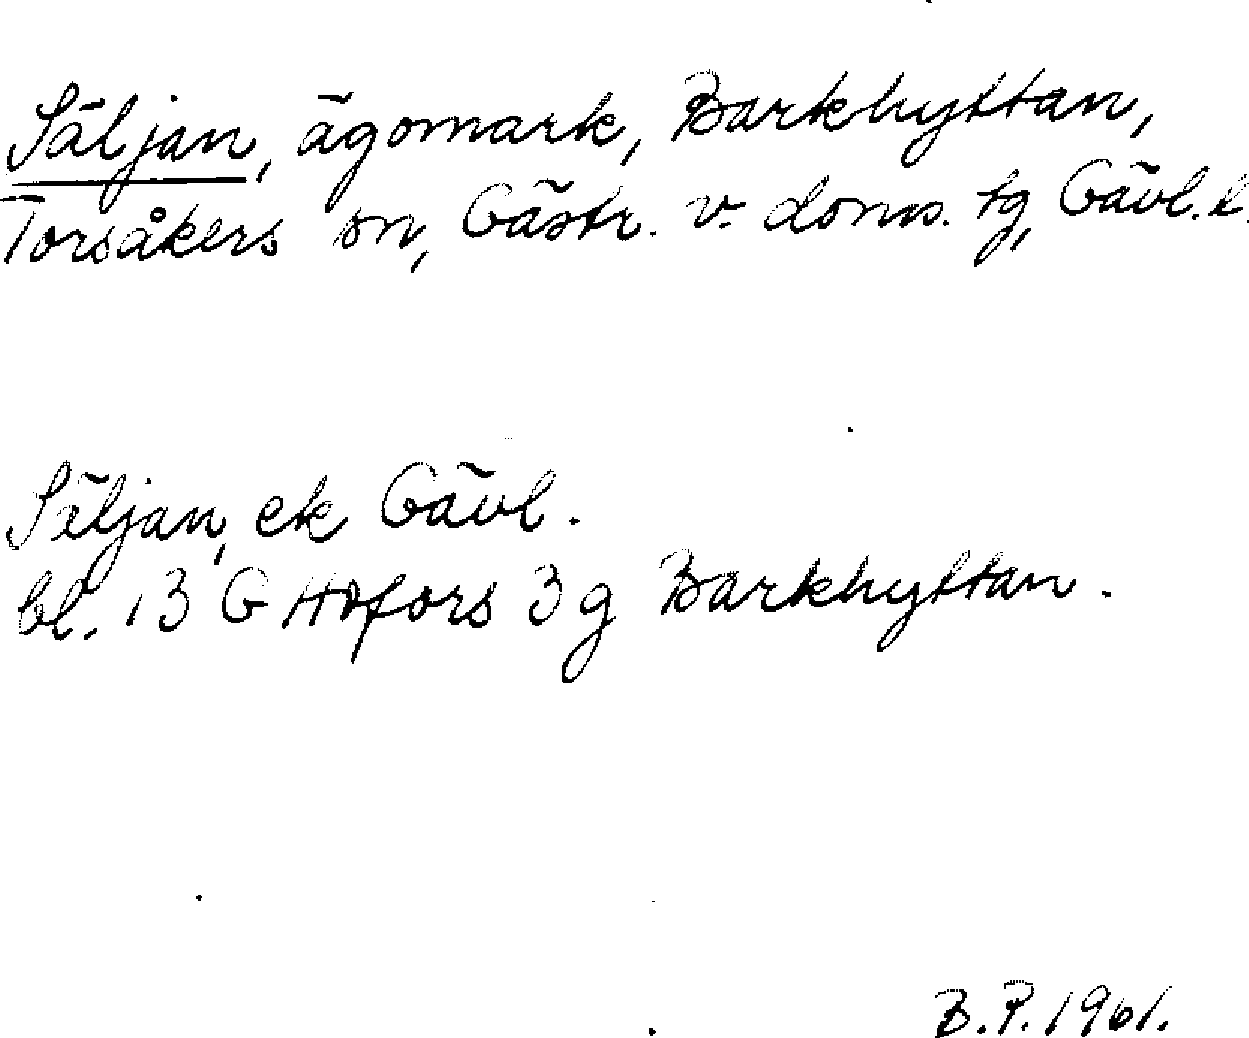 Säljan, ägomark, Barkhyttan,
Torsåkers sn, Gästr. v. doms. tg, Gävl. l.
Säljan, ek Gävl.
bl. 13 G Hofors 3 g Barkhyttan.
B.P. 1961.